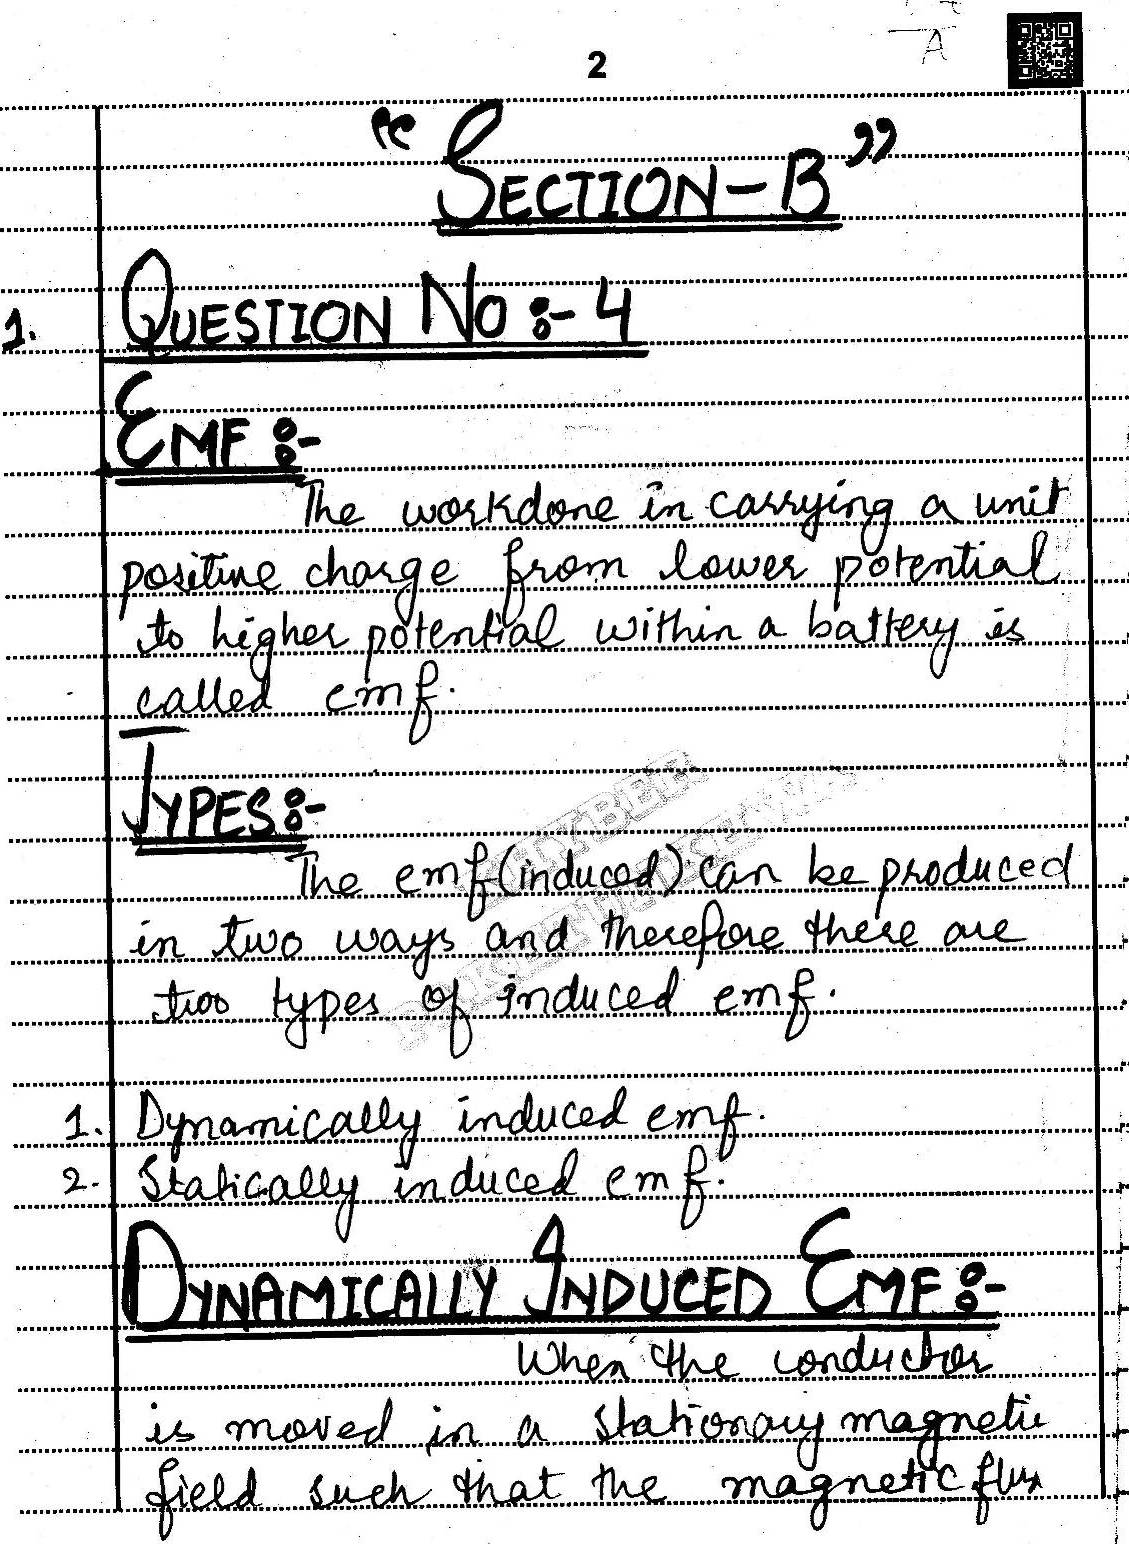 2
A
“SECTION-B”
1. QUESTION NO :- 4
EMF :-
The workdone in carrying a unit
positive charge from lower potential
to higher potential within a battery is
called emf.
TYPES :-
The emf (induced) can be produced
in two ways and therefore there are
two types of induced emf.
1. Dynamically induced emf.
2. Statically induced emf.
DYNAMICALLY INDUCED EMF :-
When the conductor
is moved in a stationary magnetic
field such that the magnetic flux